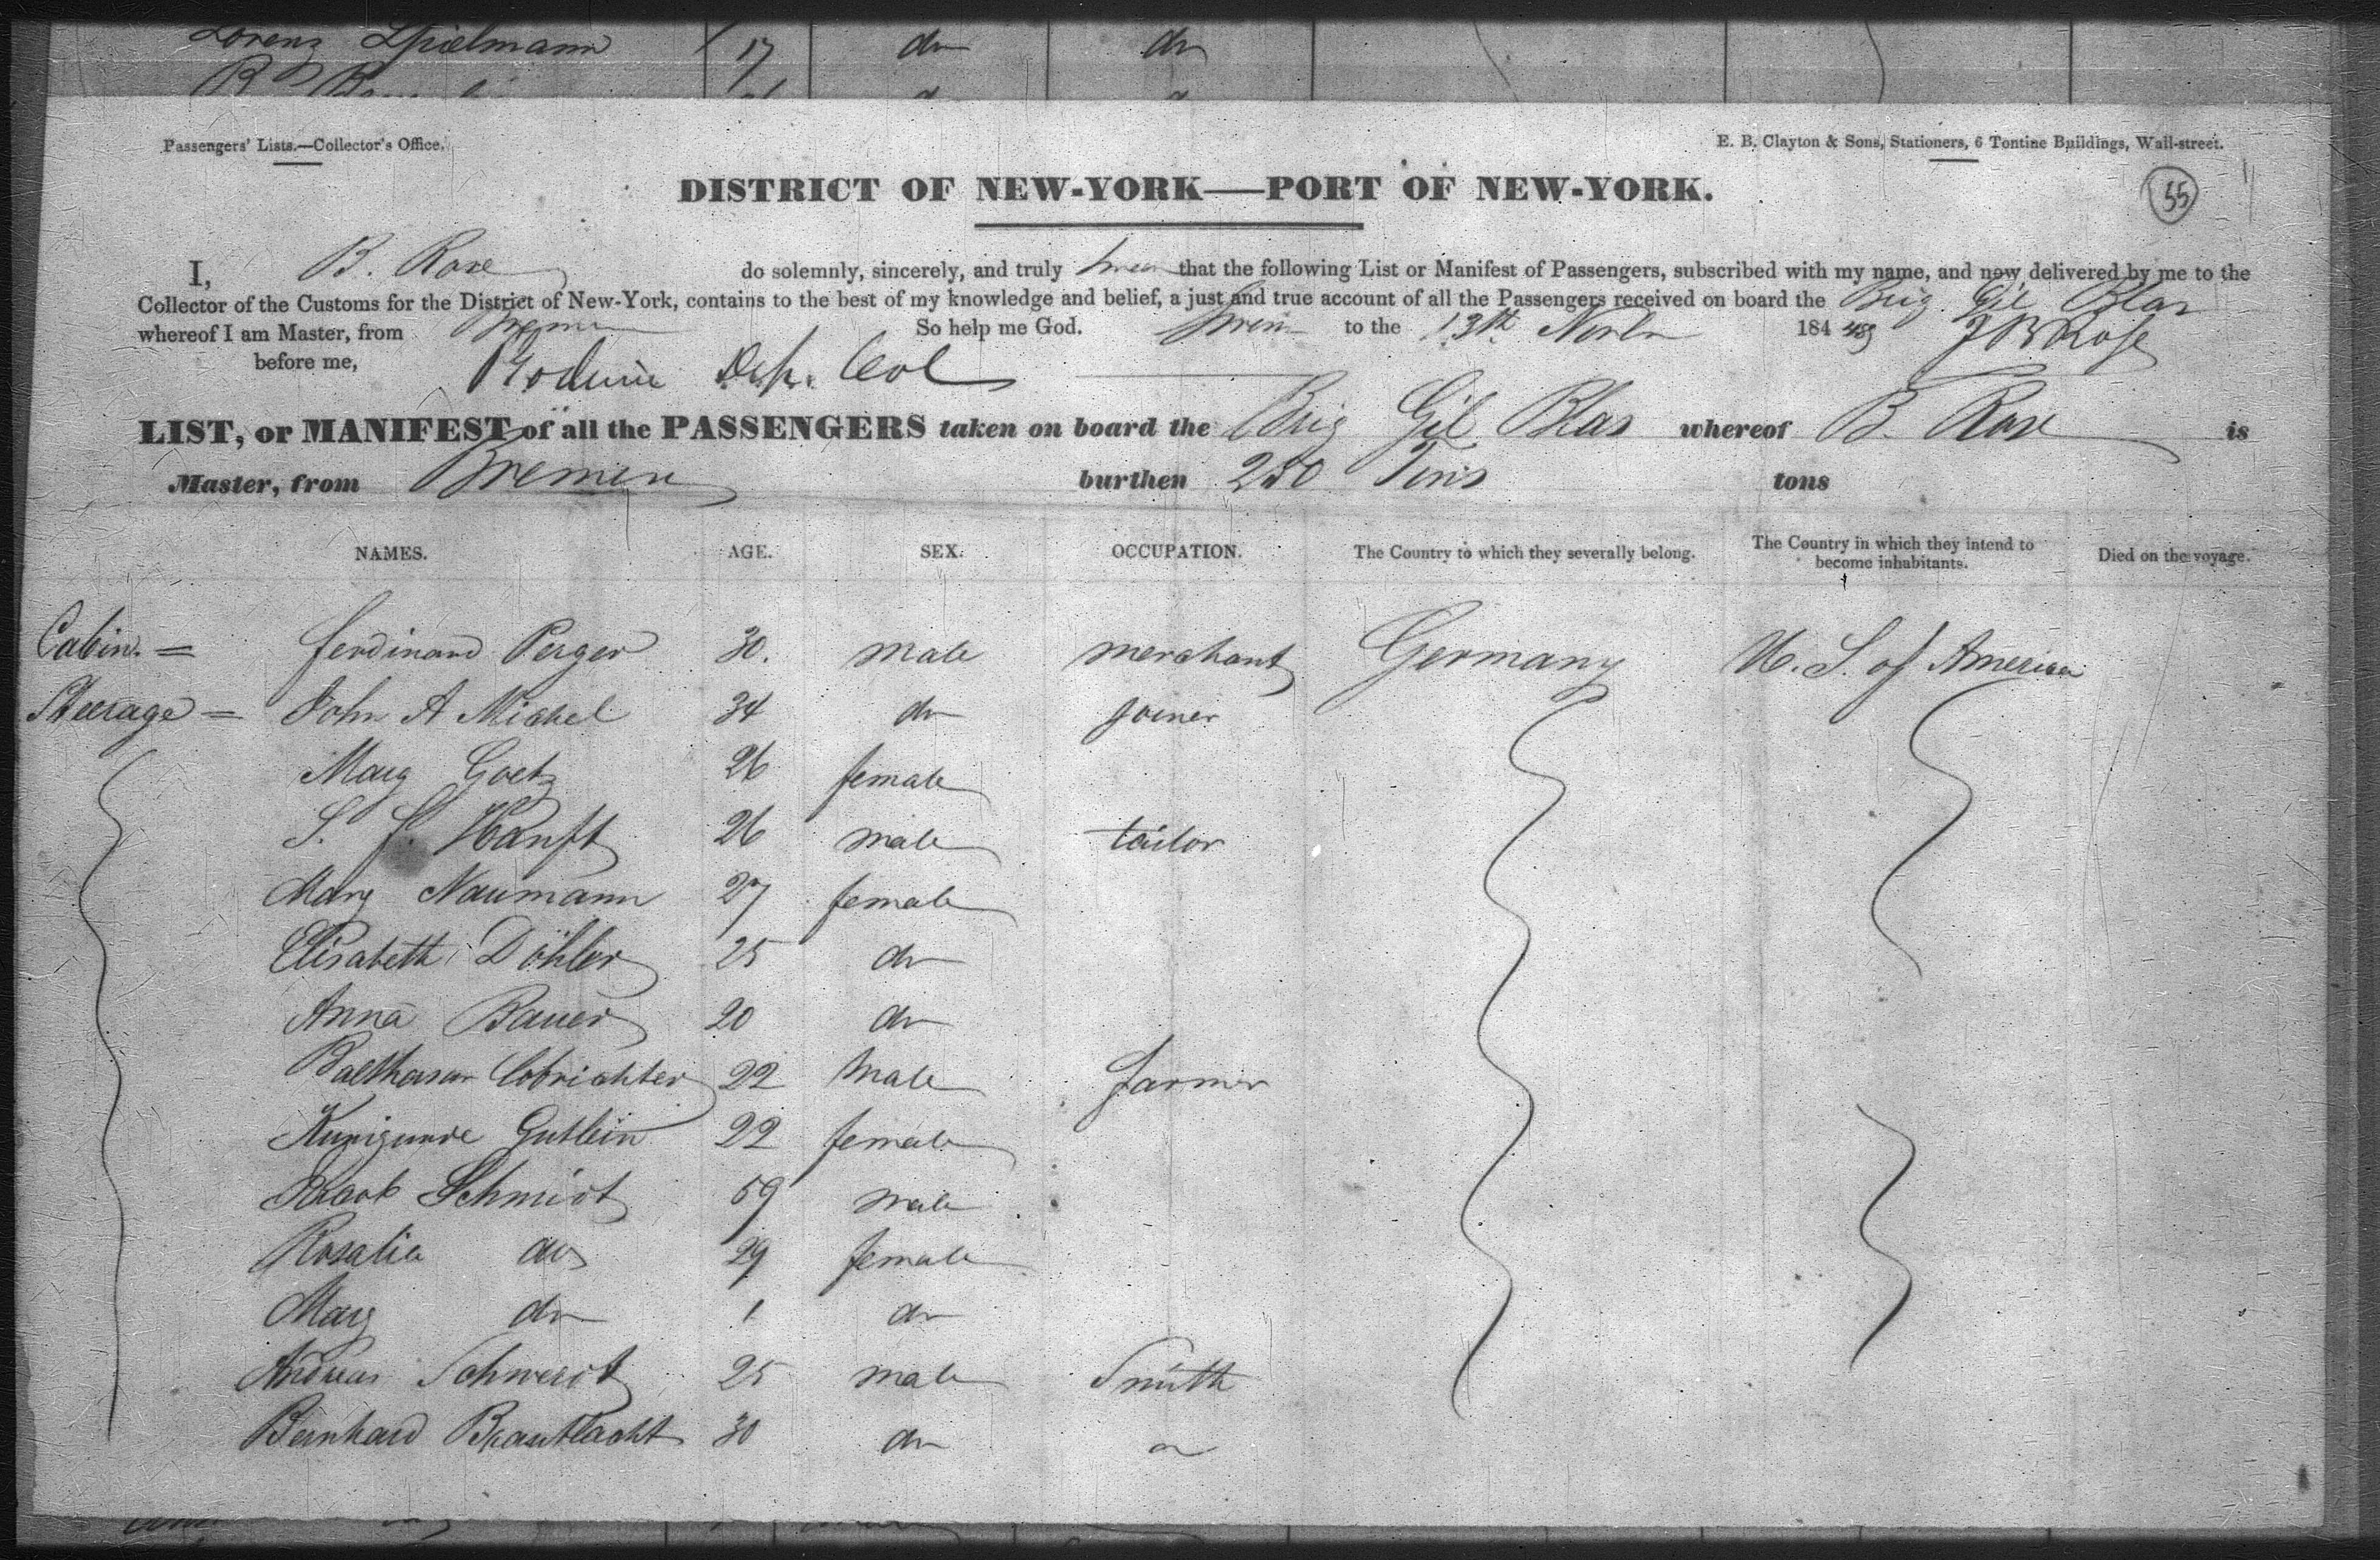 Lorenz Spielmann 17 do do
Passengers' Lists.—Collector's Office.
E. B. Clayton & Sons, Stationers, 6 Tontine Buildings, Wall-street.
DISTRICT OF NEW-YORK—PORT OF NEW-YORK.
55
I, B. Rose do solemnly, sincerely, and truly swear that the following List or Manifest of Passengers, subscribed with my name, and now delivered by me to the
Collector of the Customs for the District of New-York, contains to the best of my knowledge and belief, a just and true account of all the Passengers received on board the Brig Gil Blas
whereof I am Master, from Bremen So help me God. Sworn to the 13th Novbr 184
before me, Dep. Col
LIST, or MANIFEST of all the PASSENGERS taken on board the Brig Gil Blas whereof B. Rose is
Master, from Bremen burthen 250 Tons tons
NAMES. AGE. SEX. OCCUPATION. The Country to which they severally belong. The Country in which they intend to become inhabitants. Died on the voyage.
Cabin. = Ferdinand Perger 30. male merchant Germany U. S. of America
Steerage = John A Michel 34 do joiner
Marg Goetz 26 female
S. J. Hanft 26 male tailor
Marg Naumann 27 female
Elisabeth Döhler 25 do
Anna Bauer 20 do
Balthasar 22 Male farmer
Kunigunde Gutlein 22 female
Jacob Schmidt 59 male
Rosalie do 29 female
Marg do 1 do
Andreas Schwerdt 25 male Smith
Bernhard 30 do